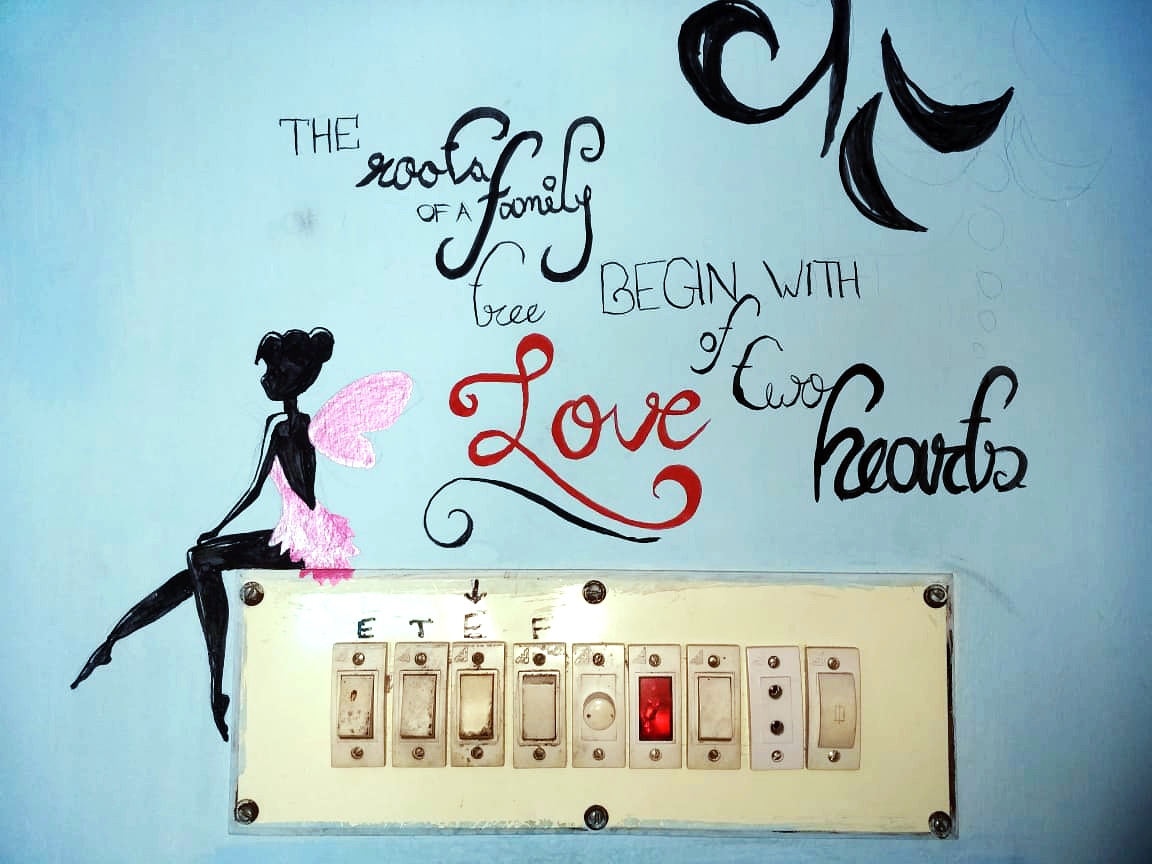 THE
roots
OF A family
tree BEGIN WITH
Love of two
hearts
E T E F